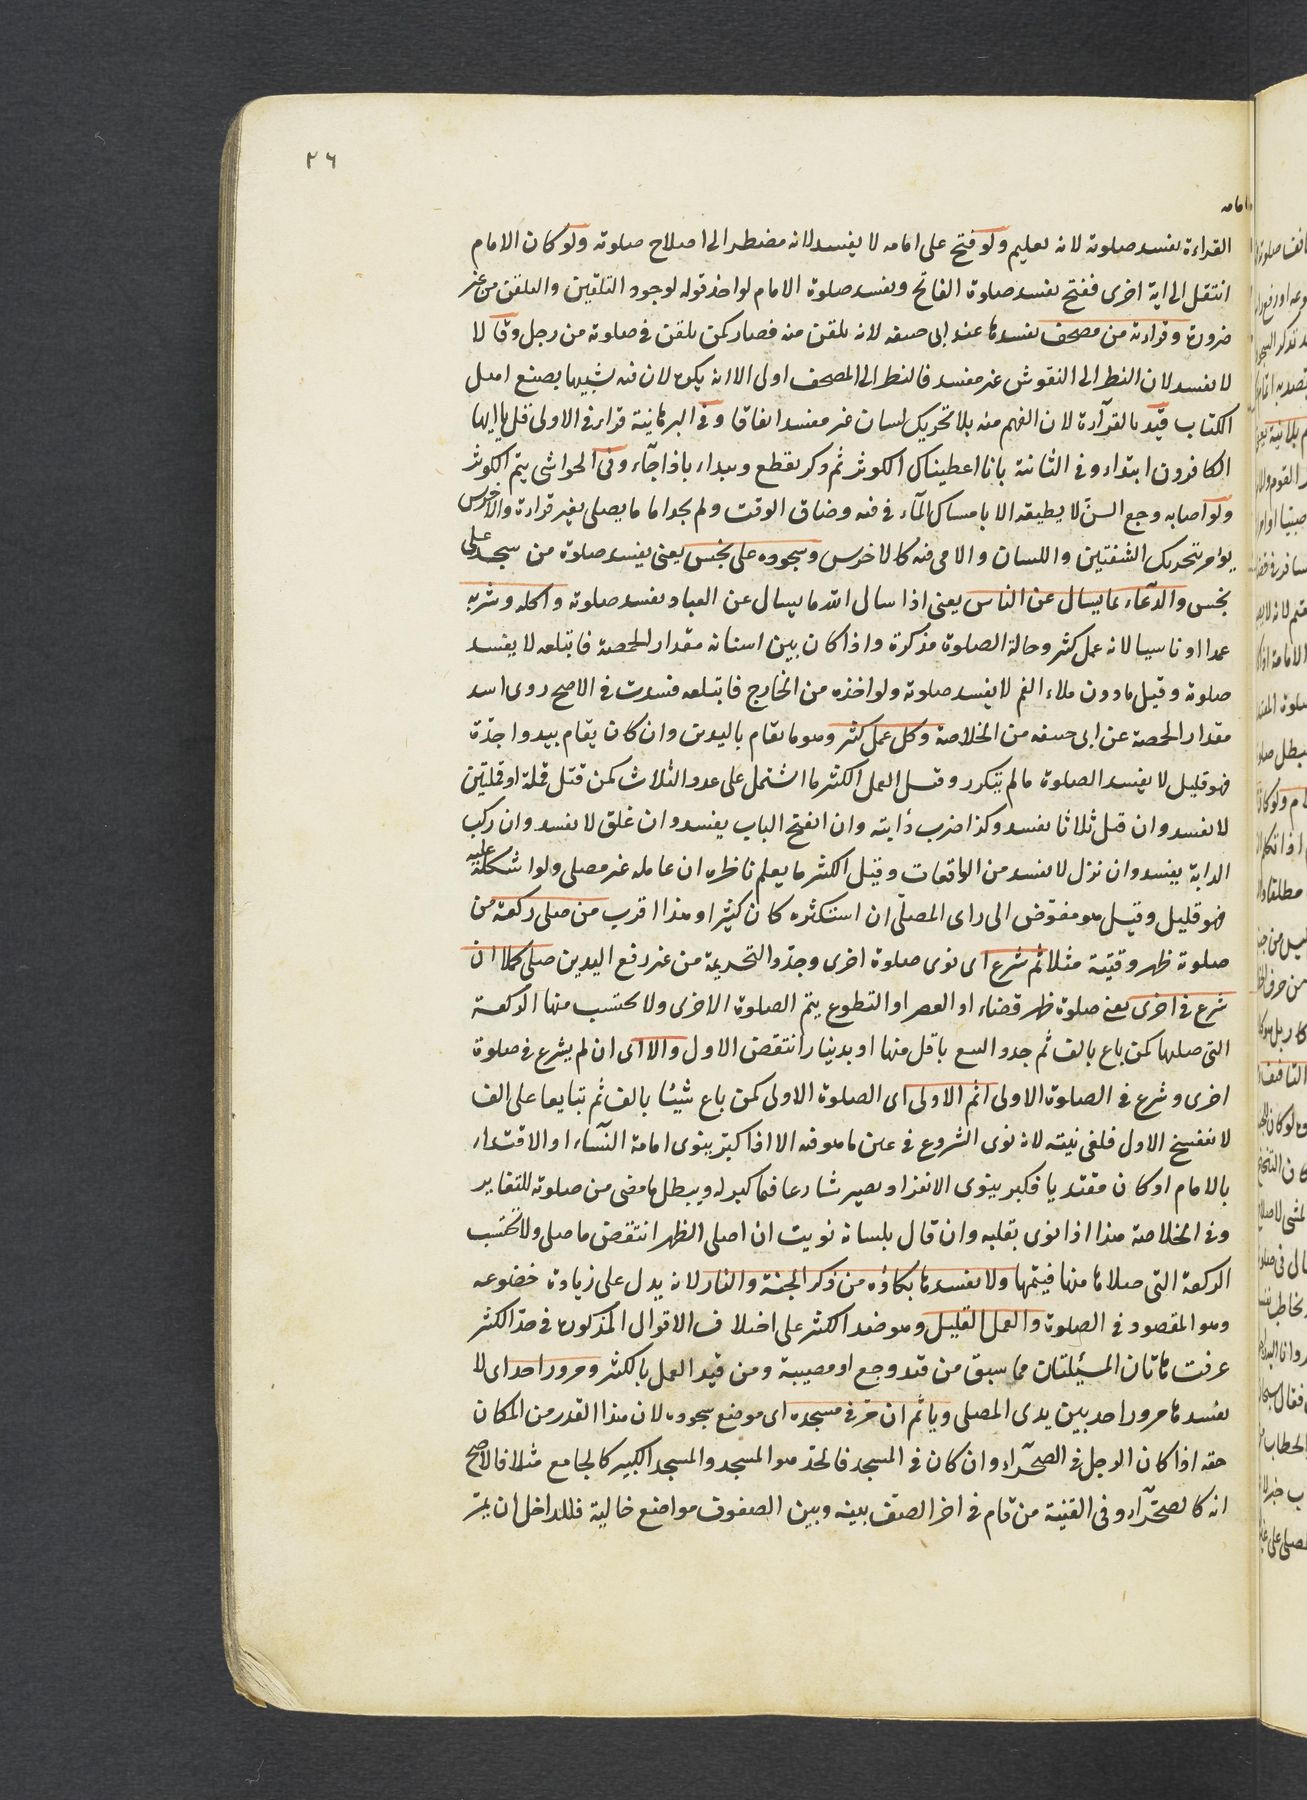 ٢٦
امامه
القراءة يفسد صلوته لانه تعليم ولو فتح على امامه لا يفسد لانه مضطر الى اصلاح صلوته ولو كان الامام
انتقل الى اية اخرى ففتح يفسد صلوة الفاتح ويفسد صلوة الامام لو اخذ قوله لوجود التلقين والتلقن من غير
ضرورة وقراءته من مصحف يفسدها عند ابى حنيفه لانه تلقن منه فصار كمن تلقن فى صلوته من رجل وقالا
لا يفسد لان النظر الى النقوش غير مفسد فالنظر الى المصحف اولى الا انه يكره لان فيه تشبيها بصنع اهل
الكتاب قيد بالقرآءة لان الفهم منه بلا تحريك لسان غير مفسد اتفاقا وفى البرهانية قراء فى الاولى قل يا ايها
الكافرون ابتداء وفى الثانية بانا اعطيناك الكوثر ثم ذكر يقطع ويبداء باذا جآء وفى الحواشى يتم الكوثر
ولو اصابه وجع السن لا يطيقه الا بامساك المآء فى فيه وضاق الوقت ولم يجد اماما يصلى بغير قراءة والاخرس
يؤمر بتحريك الشفتين واللسان والامى فيه كالاخرس وسجوده على نجس يعنى يفسد صلوة من سجد على
نجس والدعآء بما يسال عن الناس يعنى اذا سال الله ما يسال عن العباد يفسد صلوته واكله وشربه
عمدا او ناسيا لانه عمل كثير وحالة الصلوة مذكرة واذا كان بين اسنانه مقدار الحمصة فابتلعه لا يفسد
صلوته وقيل مادون ملاء الفم لا يفسد صلوته ولو اخذه من الخارج فابتلعه فسدت فى الاصح روى اسد
مقدار الحمصة عن ابى حنيفه من الخلاصة وكل عمل كثير وهو ما يقام باليدين وان كان يقام بيد واحدة
فهو قليل لا يفسد الصلوة ما لم يتكرر وقيل العمل الكثير ما اشتمل على عدد الثلاث كمن قتل قملة او قملتين
لا يفسد وان قتل ثلاثا يفسد وكذا ضرب دابته وان افتح الباب يفسد وان غلق لا يفسد وان ركب
الدابة يفسد وان نزل لا يفسد من الواقعات وقيل الكثير ما يعلم ناظره ان عامله غير مصلى ولو اشكل عليه
فهو قليل وقيل هو مفوض الى راى المصلى ان استكثره كان كثيرا وهذا اقرب من صلى ركعة من
صلوة ظهر وقتية مثلا ثم شرع اى نوى صلوة اخرى وجدد التحريمة من غير رفع اليدين صلى كملا ان
شرع فى اخرى يعنى صلوة ظهر قضاء او العصر او التطوع يتم الصلوة الاخرى ولا يحتسب منها الركعة
التى صلاها كمن باع بالف ثم جدد البيع باقل منها او بدينار انتقض الاول والا اى ان لم يشرع فى صلوة
اخرى وشرع فى الصلوة الاولى اتم الاولى اى الصلوة الاولى كمن باع شيئا بالف ثم تبايعا على الف
لا ينفسخ الاول فلغى نيته لانه نوى الشروع فى عين ما هو فيه الا اذا كبر ينوى امامة النسآء او الاقتداء
بالامام او كان مقتديا فكبر ينوى الانفراد يصير شارعا فيما كبر له ويبطل ما مضى من صلوته للتغاير
وفى الخلاصة هذا اذا نوى بقلبه وان قال بلسانه نويت ان اصلى الظهر انتقض ما صلى ولا يحتسب
الركعة التى صلاها منها فيتمها ولا يفسدها بكاؤه من ذكر الجنة والنار لانه يدل على زيادة خضوعه
وهو المقصود فى الصلوة والعمل القليل وهو ضد الكثير على اختلاف الاقوال المذكورة فى حد الكثير
عرفت هاتان المسئلتان مما سبق من قيد وجع او مصيبة ومن قيد العمل بالكثير ومرور احد اى لا
يفسدها مرور احد بين يدى المصلى وياثم ان مر فى مسجده اى موضع سجوده لان هذا القدر من المكان
حقه اذا كان الرجل فى الصحرآء وان كان فى المسجد فالحد هو المسجد والمسجد الكبير كالجامع مثلا فالاصح
انه كالصحرآء وفى القنية من قام فى اخر الصف بينه وبين الصفوف مواضع خالية فللداخل ان يمر